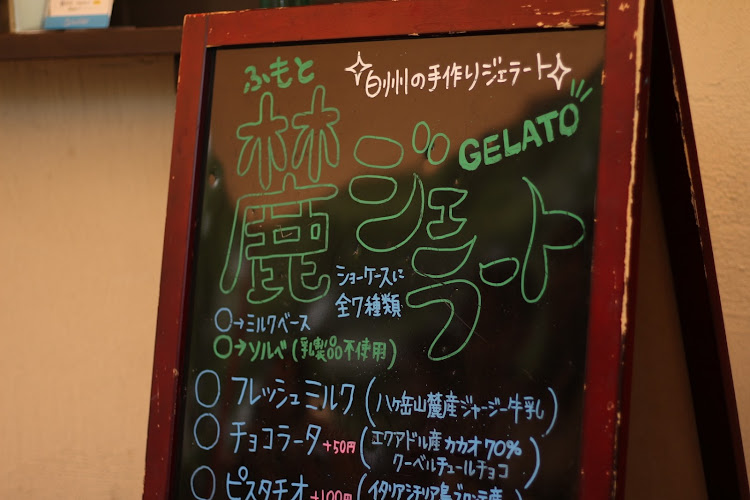 白州の手作りジェラート
ふもと
麓ジェラート
GELATO
ショーケースに
全7種類
○→ミルクベース
○→ソルベ(乳製品不使用)
○フレッシュミルク(八ヶ岳山麓産ジャージー牛乳)
○チョコラータ+50円(エクアドル産カカオ70%
クーベルチュールチョコ)
○ピスタチオ+100円(イタリアシチリア島ブロンテ産